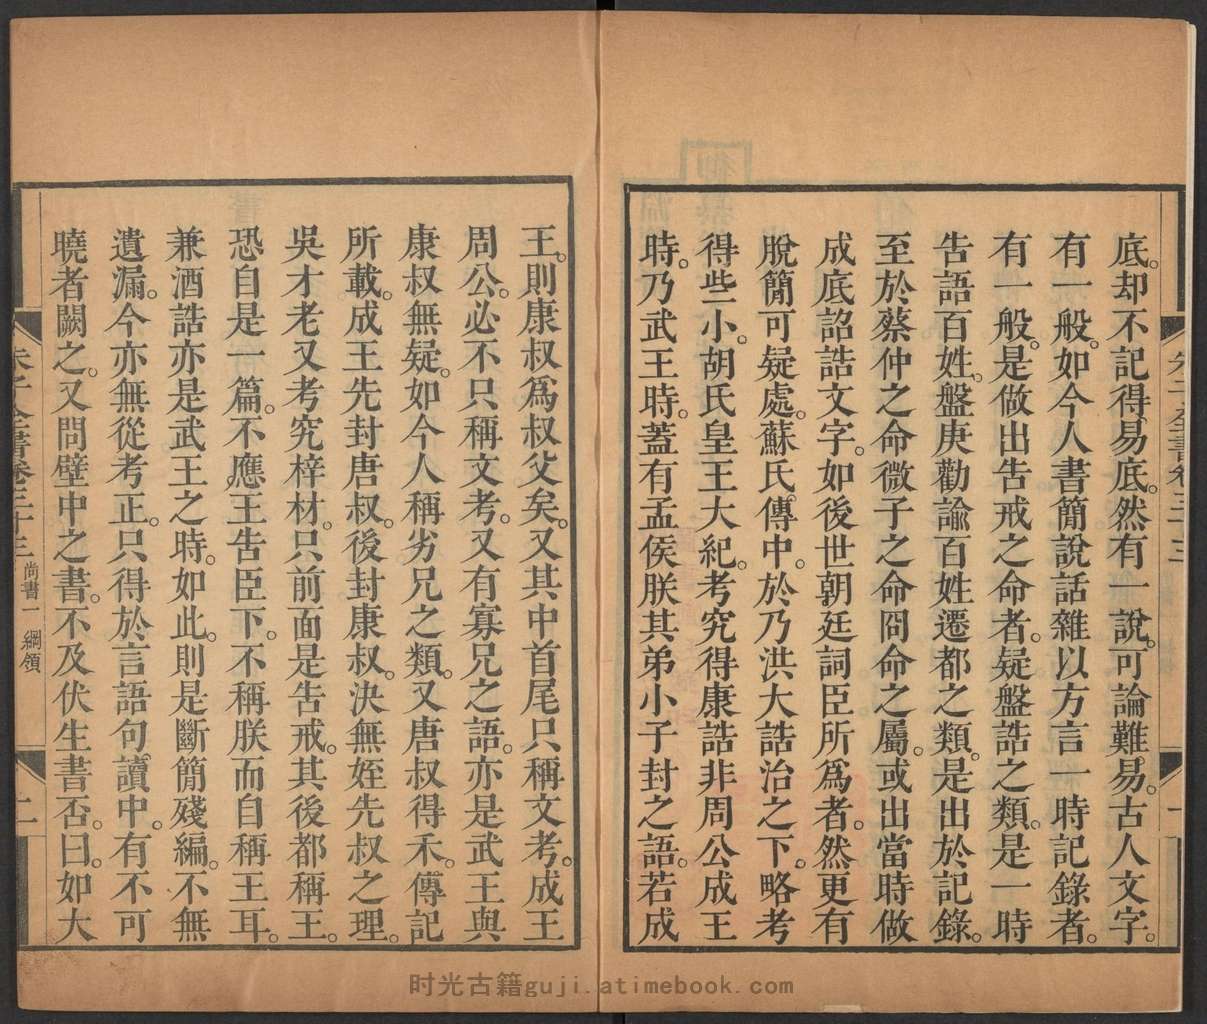 底。却不記得易底。然有一說。可論難易。古人文字。
有一般。如今人書簡說話雜以方言一時記錄者。
有一般。是做出告戒之命者。疑盤誥之類。是一時
告語百姓。盤庚勸諭百姓遷都之類。是出於記錄。
至於蔡仲之命微子之命冏命之屬。或出當時做
成底詔誥文字。如後世朝廷詞臣所爲者。然更有
脫簡可疑處。蘇氏傳中。於乃洪大誥治之下。略考
得些小。胡氏皇王大紀。考究得康誥非周公成王
時。乃武王時。蓋有孟侯朕其弟小子封之語。若成
朱子全書卷三十三
一
王。則康叔爲叔父矣。又其中首尾只稱文考。成王
周公。必不只稱文考。又有寡兄之語。亦是武王與
康叔無疑。如今人稱劣兄之類。又唐叔得禾。傳記
所載。成王先封唐叔。後封康叔。決無姪先叔之理。
吳才老又考究梓材。只前面是告戒。其後都稱王。
恐自是一篇。不應王告臣下。不稱朕而自稱王耳。
兼酒誥亦是武王之時。如此。則是斷簡殘編。不無
遺漏。今亦無從考正。只得於言語句讀中。有不可
曉者闕之。又問壁中之書。不及伏生書否。曰。如大
朱子全書卷三十三 尚書一 綱領
二
时光古籍guji.atimebook.com